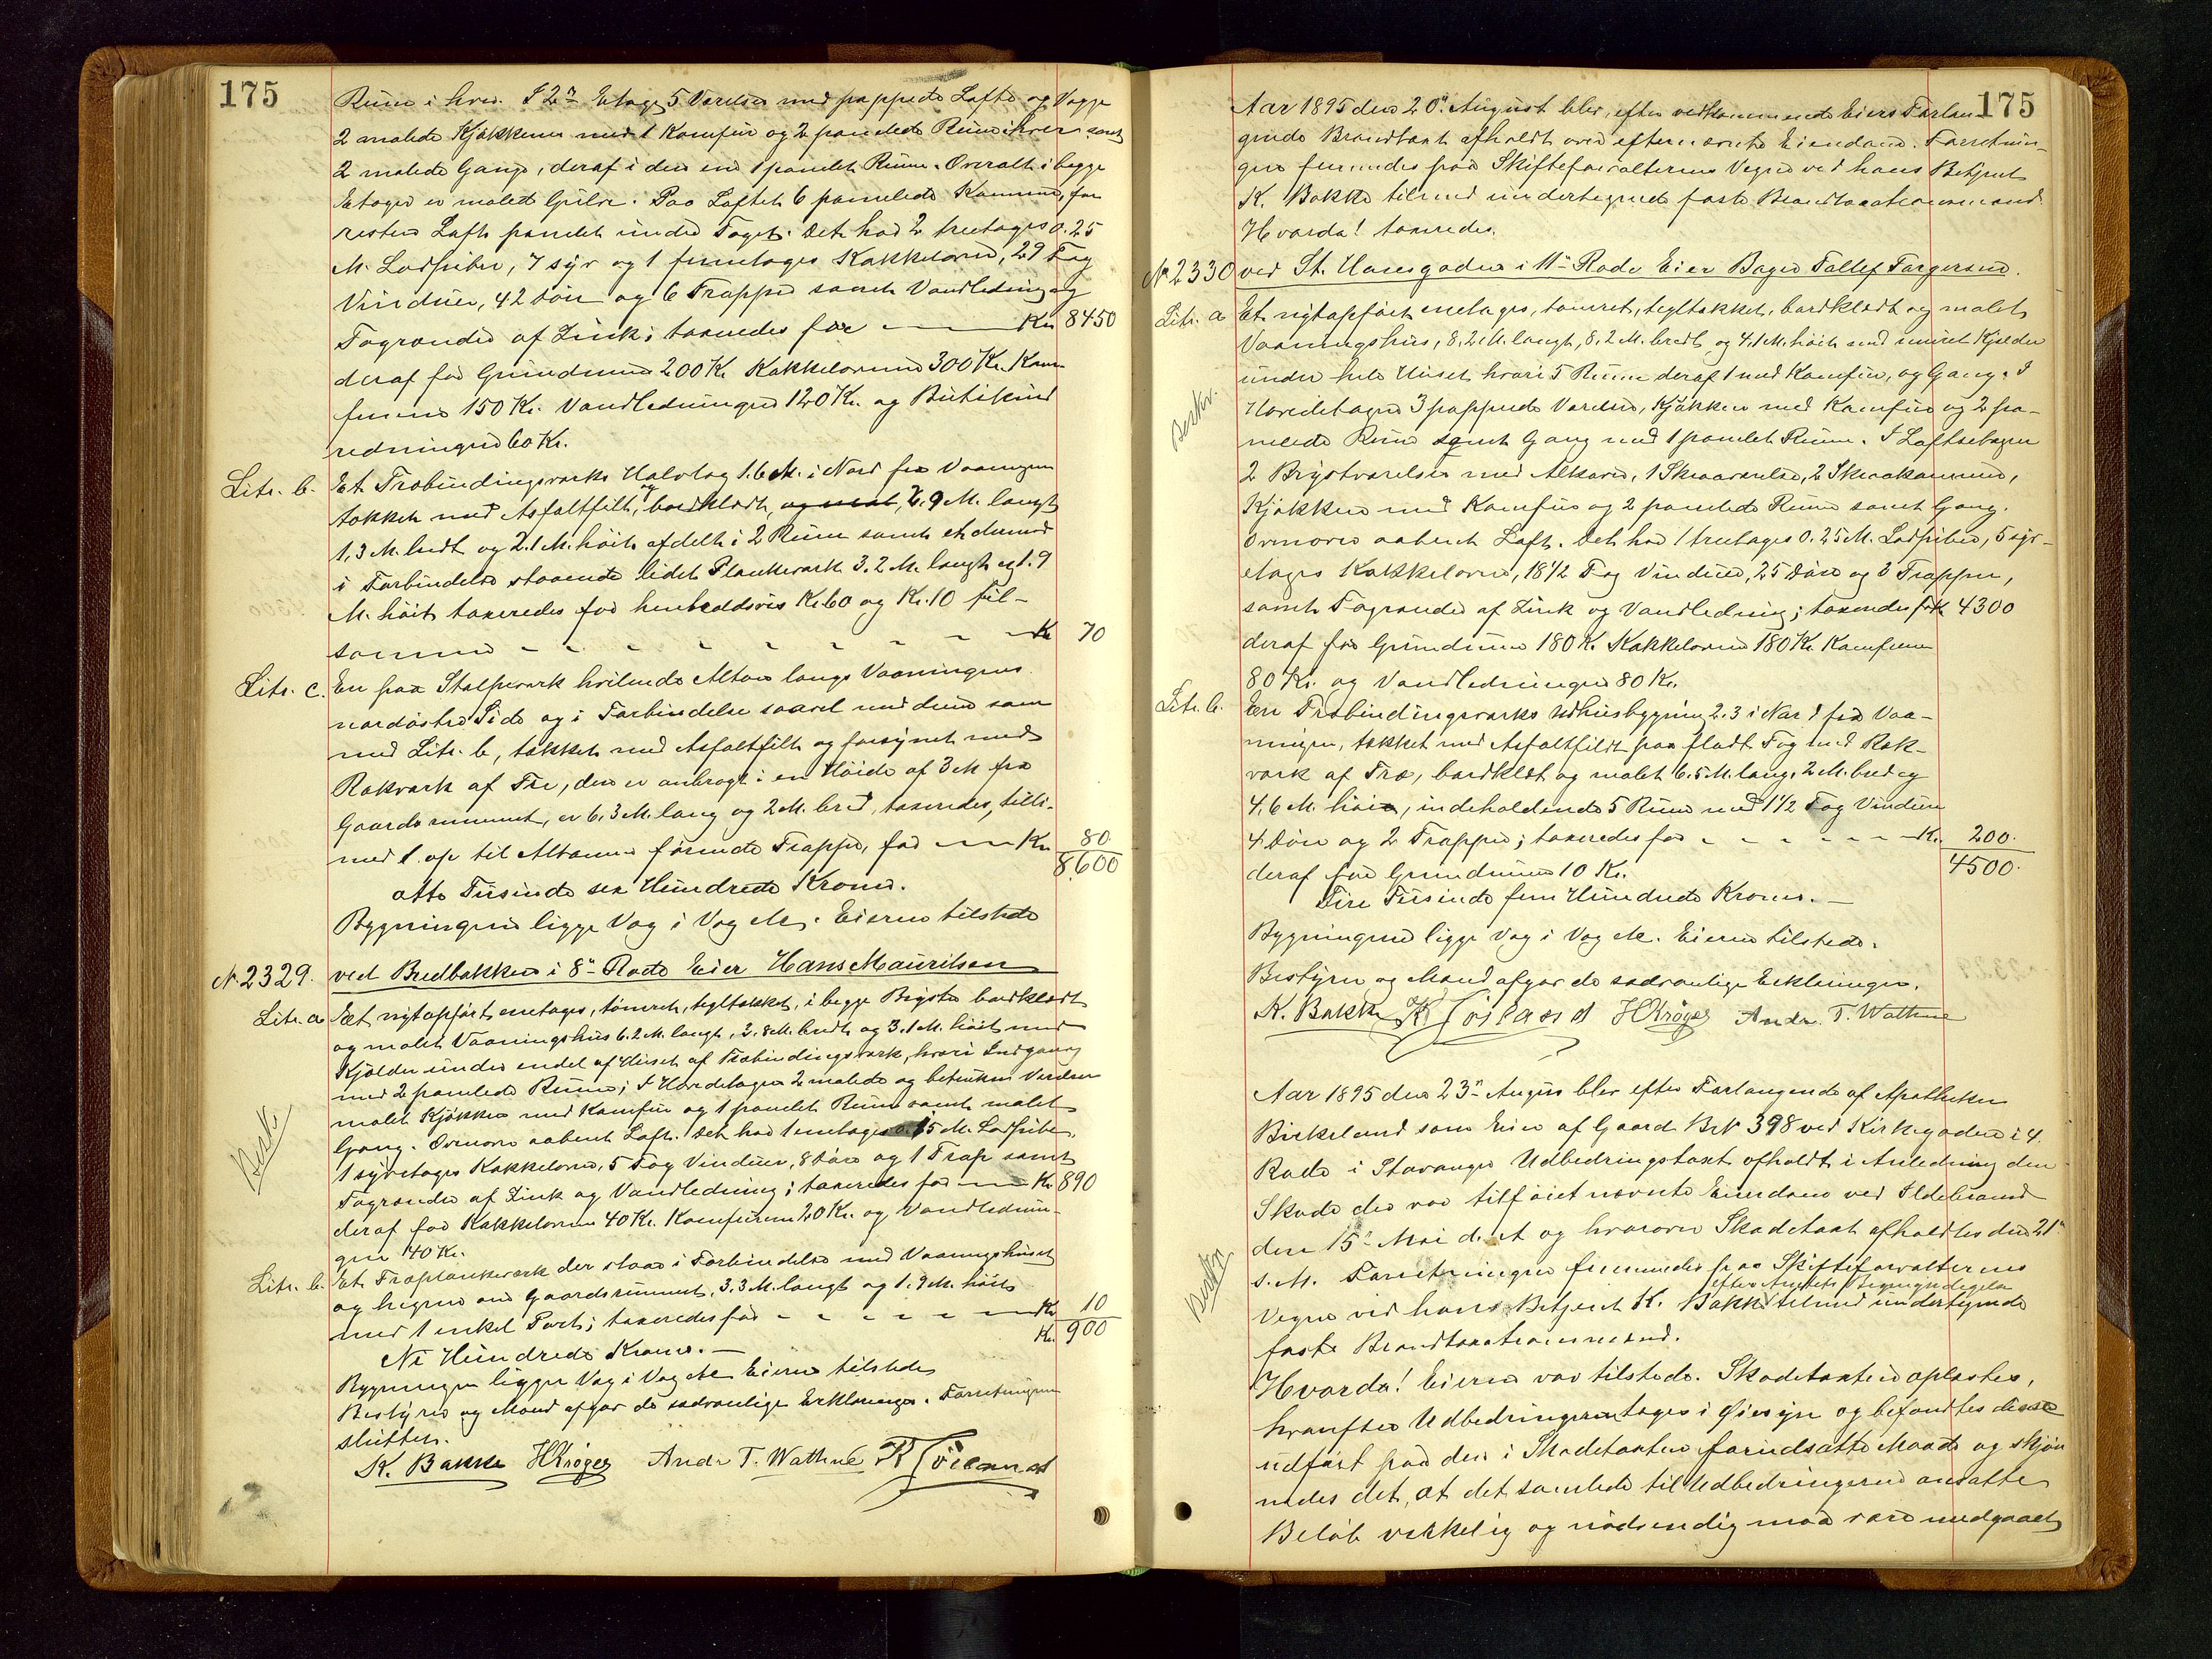 175
Rum i hver. I 2n Etage 5 Værelser med pappede Lofte og Vægge
2 malede Kjøkkener med 1 Komfur og 2 panelede Rum i hver samt
2 malede Gange, deraf i den ene 1 panelet Rum. Overalt i begge
Etager er malet Gulve. Paa Loftet 6 panelede Kammer, for
resten Loft panelet under Taget. Det har 2 treetages 0.25
M. Lodpiber, 7 syv og 1 femetages Kakkelovne, 29 Fag
Vinduer, 42 Døre og 6 Trapper samt Vandledning og
Tagrender af Zink; taxeredes for Kr 8450
deraf for Grundmur 200 Kr. Kakkelovnene 300 Kr. Kom-
furene 150 Kr. Vandledningen 120 Kr. og Butikind
redningen 60 Kr.
Litr. b. Et Træbindingsværks Halvtag 1.6 M. i Nord fra Vaaningen
tækket med Asfaltfilt, og bordklædt, 2.9 M. langt
1,3 M. bredt og 2.1 M. høit afdelt i 2 Rum samt et dermed
i Forbindelse staaende lidet Plankeværk 3.2 M. langt og 1.9
M. høit taxeredes for henholdsvis Kr. 60 og Kr. 10 til-
sammen Kr 70
Litr. c. En paa Stolpeværk hvilende Altan langs Vaaningens
nordøstre Side og i Forbindelse saavel med denne som
med Litr. b, tækket med Asfaltfilt og forsynet med
Rækværk af Træ, den er anbragt i en Høide af 3 M fra
Gaardsrummet, er 6,3 M. lang og 2 M. bred, taxeredes, tilli-
med 1 op til Altanen førende Trappe, for Kr. 80
8,600
otte Tusinde sex Hundrede Kroner.
Bygningerne ligge Væg i Væg M. Eieren tilstede
No 2329. ved Bredbakken i 8n Rode Eier Hans Mauritsen
Litr. a Et nytopført enetages, tømret, tegltækket, i begge Bryste bordklædt
og malet Vaaningshus 6.2 M. langt, 2.8 M. bredt og 3.1 M. høit med
Kjelder under endel af Huset af Træbindingsværk, hvori Indgang
med 2 panelede Rum; I Hovedetagen 2 malede og betrukne Værelser
malet Kjøkken med Komfur og 1 panelet Rum samt malet
Gang. Ovenover aabent Loft. Det har 1 enetages 0.15 M. Lodpibe,
1 syvetages Kakkelovn, 5 Fag Vinduer, 8 Døre og 1 Trap samt
Tagrender af Zink og Vandledning; taxeredes for Kr. 890
deraf for Kakkelovnen 40 Kr. Komfuren 20 Kr. og Vandlednin-
gen 40 Kr.
Litr. b. Et Træplankeværk der staar i Forbindelse med Vaaningshuset
og hegner om Gaardsrummet, 3,3 M. langt og 1.9 M. høit
med 1 enkel Port; taxeredes for Kr. 10
Kr. 900
Ni Hundrede Kroner.
Bygningen ligger Væg i Væg M. Eieren tilstede
Bestyrer og Mænd afgav de sædvanlige Erklæringer. Forretningen
sluttet.
K. Bakke HKrøger Andr T. Wathne
Beskr
175
Aar 1895 den 20n August blev, efter vedkommende Eiers Forlan-
gende Brandtaxt afholdt over efternævnte Eiendom. Forretnin-
gen fremmedes paa Skifteforvalterens Vegne ved hans Betjent
K. Bakke tilmed undertegnede faste Brandtaxationsmænd.
Hvorda! taxeredes.
No 2330 ved St. Hansgaden i 11n Rode Eier Bager Tallef Torgersen.
Litr. a Et nytopført enetages, tømret, tegltækket, bordklædt og malet
Vaaningshus, 8,2 M. langt, 8,2 M. bredt og 4.1 M. høit med muret Kjælder
under hele Huset hvori 5 Rum deraf 1 med Komfur, og Gang. I
Hovedetagen 3 pappede Værelser, Kjøkken med Komfur og 2 pa-
nelede Rum samt Gang med 1 panelet Rum. I Loftsetagen
2 Brystværelser med Alkover, 1 Skraaværelse, 2 Skraakammer,
Kjøkken med Komfur og 2 panelede Rum samt Gang.
Ovenover aabent Loft. Det har 1 treetages 0.25 M. Lodpibe, 5 syv-
etages Kakkelovne, 18 1/2 Fag Vinduer, 25 Døre og 3 Trapper,
samt Tagrender af Zink og Vandledning; taxeredes for Kr 4300
deraf for Grundmur 180 Kr. Kakkelovnene 180 Kr. Komfurene
80 Kr. og Vandledningen 80 Kr.
Litr. b. En Træbindingsværks Udhusbygning 2.3 i Nord fra Vaa-
ningen, tækket med Asfaltfilt paa fladt Tag med Ræk-
værk af Træ, bordklædt og malet 6.5 M. lang, 2 M. bred og
4,6 M. høi, indeholdende 5 Rum med 1 1/2 Fag Vinduer
4 Døre og 2 Trapper; taxeredes for Kr. 200.
deraf for Grundmuren 10 Kr. 4500.
Fire Tusinde fem Hundrede Kroner.
Bygningerne ligge Væg i Væg M. Eieren tilstede.
Bestyrer og Mænd afgav de sædvanlige Erklæringer.
K. Bakke HKrøger Andr. T. Wathne
Beskr.
Aar 1895 den 23n August blev efter Forlangende af Apotheker
Birkeland som Eier af Gaard Br No 398 ved Kirkegaden i 4.
Rode i Stavanger Udbedringstaxt afholdt i Anledning den
Skade der var tilføiet nævnte Eiendom ved Ildebrand
den 15n Mai d. A og hvorover Skadetaxt afholdtes den 21n
s. M. Forretningen fremmedes paa Skifteforvalterens
Vegne ved hans Betjent K. Bakke tilmed undertegnede
faste Brandtaxationsmænd.
Hvorda! Eieren var tilstede. Skadetaxten oplæstes,
hvorefter Udbedringerne toges i Øiesyn og befandtes disse
udført paa den i Skadetaxten forudsatte Maade og skjøn
nedes det, at det samlede til Udbedringerne ansatte
Beløb virkkelig og nødvendig maa være medgaaet
Beskr